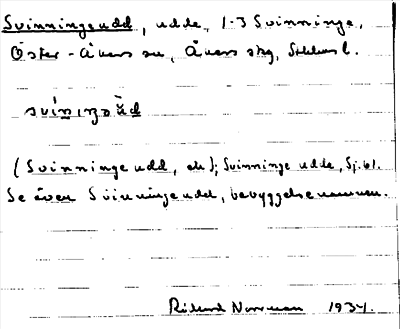 Svinningeudd, udde, 1-3 Svinninge,
Öster-Åkers sn, Åkers skg, Sthlms l.
(Svinninge udd, ek); Svinninge udde, Sj. 61.
Se även Svinningeudd, bebyggelsenamn.
Rickard Norrman 1934.